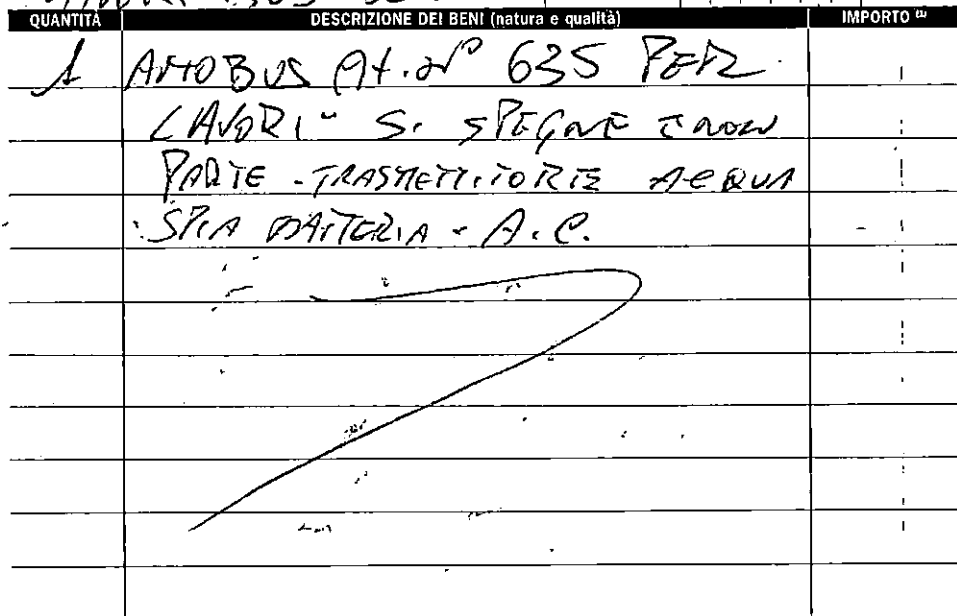 QUANTITÀ DESCRIZIONE DEI BENI (natura e qualità) IMPORTO
1 AUTOBUS At. N° 635 PER
LAVORI - SI SPEGNE E NON
PARTE - TRASMETTITORE ACQUA
SPIA BATTERIA - A.C.